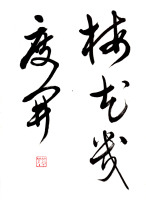 梅花幾
度開